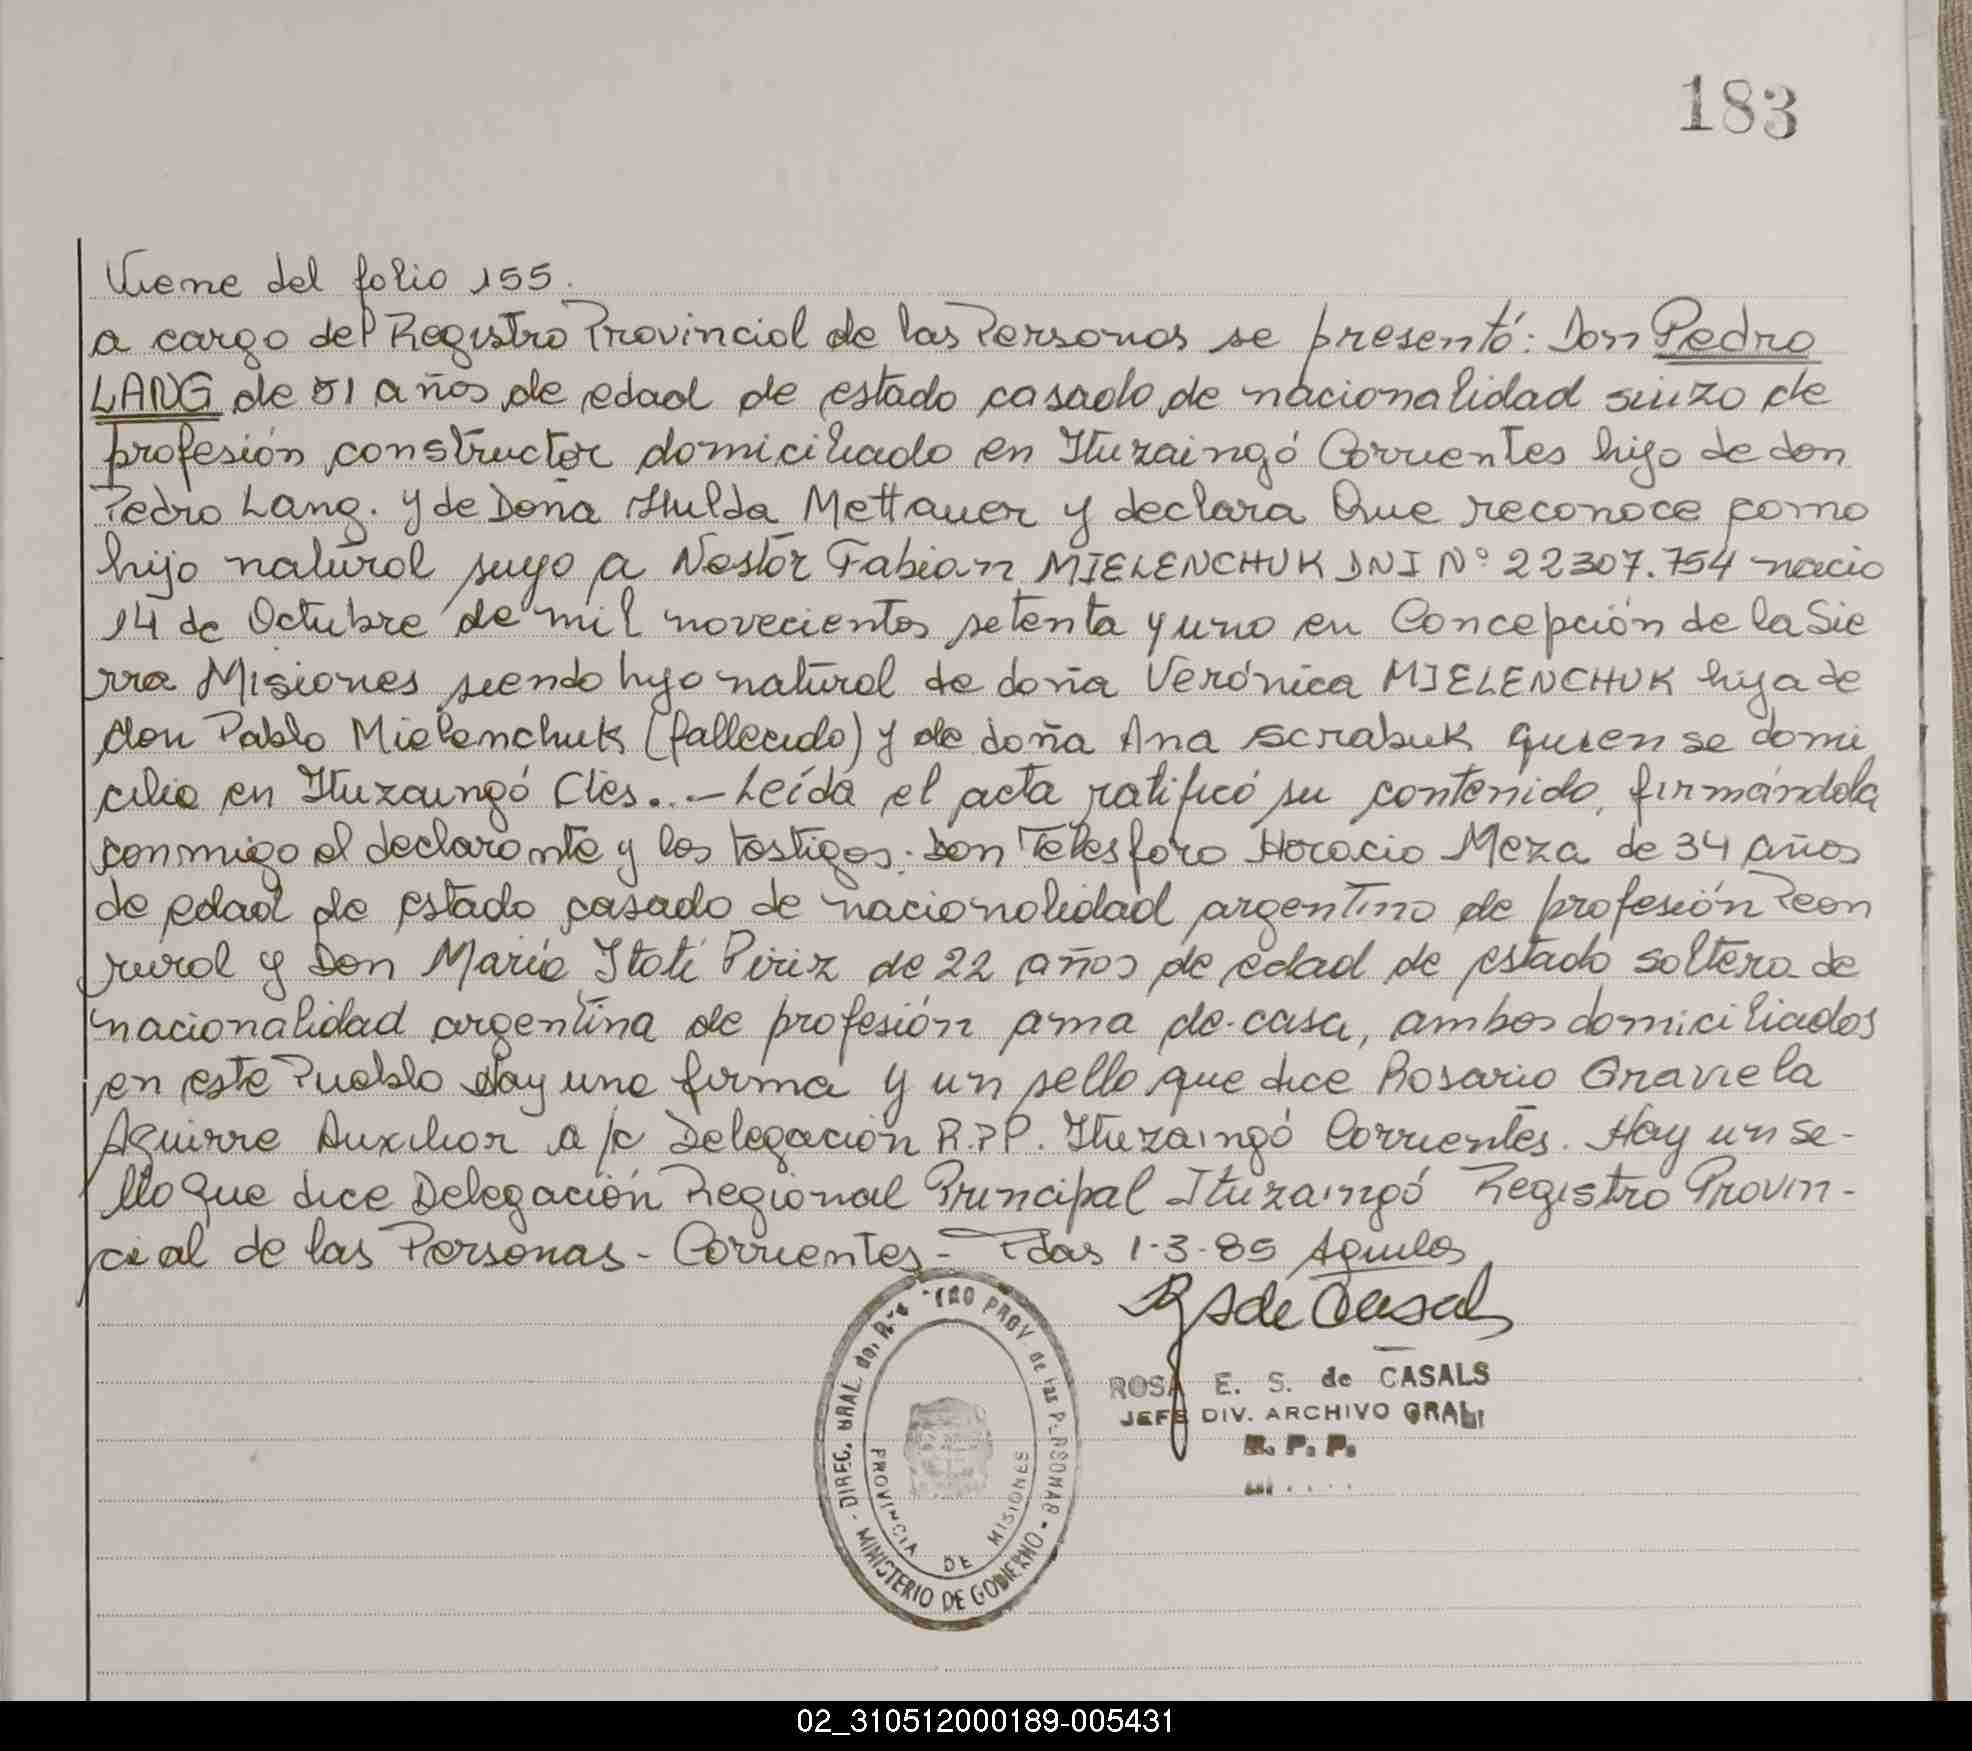 183
Viene del folio 155.
a cargo del Registro Provincial de las Personas se presentó: Don Pedro
LANG de 51 años de edad de estado casado de nacionalidad suizo de
profesión constructor domiciliado en Ituzaingó Corrientes hijo de don
Pedro Lang. y de Doña Hulda Mettauer y declara Que reconoce como
hijo natural suyo a Nestor Fabian MIELENCHUK DNI Nº 22307.754 nacio
14 de Octubre de mil novecientos setenta y uno en Concepción de la Sie
rra Misiones siendo hijo natural de doña Verónica MIELENCHUK hija de
don Pablo Mielenchuk (fallecido) y de doña Ana Scrabuk quien se domi
cilia en Ituzaingó Ctes..- Leída el acta ratificó su contenido, firmándola
conmigo el declarante y los testigos. Don Telesforo Horacio Meza de 34 años
de edad de estado casado de nacionalidad argentino de profesión Peon
rural y Don María Itatí Piriz de 22 años de edad de estado soltera de
nacionalidad argentina de profesión ama de casa, ambos domiciliados
en este Pueblo Hay una firma y un sello que dice Rosario Graviela
Aguirre Auxiliar a/c Delegación R.P.P. Ituzaingó Corrientes. Hay un se-
llo que dice Delegación Regional Principal Ituzaingó Registro Provin-
cial de las Personas - Corrientes - Pdas 1-3-85
DIREC. GRAL. del PROV. de las PERSONAS - MINISTERIO DE GOBIERNO -
PROVINCIA DE MISIONES
ROSA E. S. de CASALS
JEFE DIV. ARCHIVO GRAL
R. P. P.
02_310512000189-005431